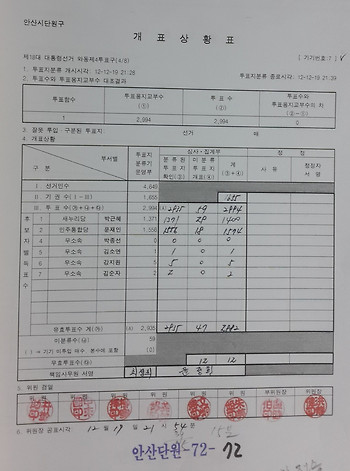 안산시단원구
개 표 상 황 표
제18대 대통령선거 와동제4투표구(4/8) [기기번호: 7 ]
1. 투표지분류 개시시각: 12-12-19 21:28 투표지분류 종료시각: 12-12-19 21:39
2. 투표수와 투표용지교부수 대조결과
투표함수 투표용지교부수 (①) 투 표 수 (②) 투표수와 투표용지교부수의 차 (②-①)
1 2,994 2,994 0
3. 잘못 투입·구분된 투표지 선거 매
4. 개표상황
구 분 부서별 투표지분류기운영부 심사·집계부 정 정
분류된 투표지 확인(③) 미분류 투표지 개표(④) 계 (③+④) 사 유 정정자 서 명
Ⅰ 선거인수 4,649
Ⅱ 기 권 수 (Ⅰ-Ⅲ) 1,655 1655
Ⅲ 투 표 수 2,994 2935 59 2994
후보자별득표수
1 새누리당 박근혜 1,371 1371 29 1400
2 민주통합당 문재인 1,556 1556 18 1574
4 무소속 박종선 0 0 0 0
5 무소속 김소연 1 0 1
6 무소속 강지원 5 0 5
7 무소속 김순자 2 2 0 2
유효투표수 계 2,935 2935 47 2982
미분류수 59
무효투표수 12 12
책임사무원 서명
5. 위원 검열
위 원 위 원 위 원 위 원 위 원 위 원 부위원장 위원장
6. 위원장 공표시각: 12 월 19 일 21 시 54 분
안산단원-72- 72